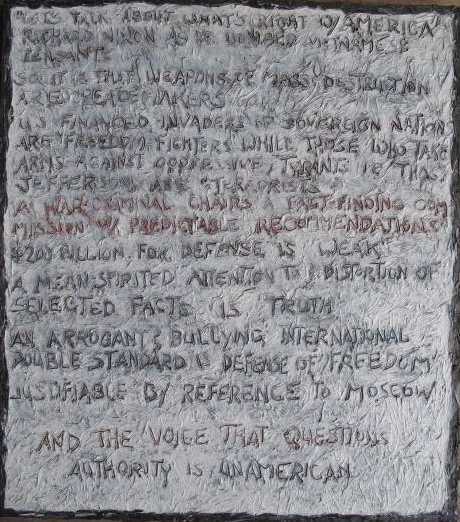 "LET'S TALK ABOUT WHAT'S RIGHT W/ AMERICA"
RICHARD NIXON AS HE BOMBED VIETNAMESE
PEASANTS
SO IT IS THAT WEAPONS OF MASS DESTRUCTION
ARE "PEACEMAKERS"
U.S. FINANCED INVADERS OF SOVEREIGN NATION
ARE "FREEDOM FIGHTERS" WHILE THOSE WHO TAKE
ARMS AGAINST OPPRESSIVE TYRANTS THOS
JEFFERSON ARE "TERRORISTS"
A WAR CRIMINAL CHAIRS A FACT-FINDING COM
MISSION W/ PREDICTABLE RECOMMENDATIONS
BILLION FOR DEFENSE IS "WEAK"
A MEAN-SPIRITED ATTENTION TO & DISTORTION OF
SELECTED FACTS IS TRUTH
AN ARROGANT & BULLYING INTERNATIONAL
DOUBLE STANDARD IS DEFENSE OF "FREEDOM"
JUSTIFIABLE BY REFERENCE TO MOSCOW
AND THE VOICE THAT QUESTIONS
AUTHORITY IS UNAMERICAN